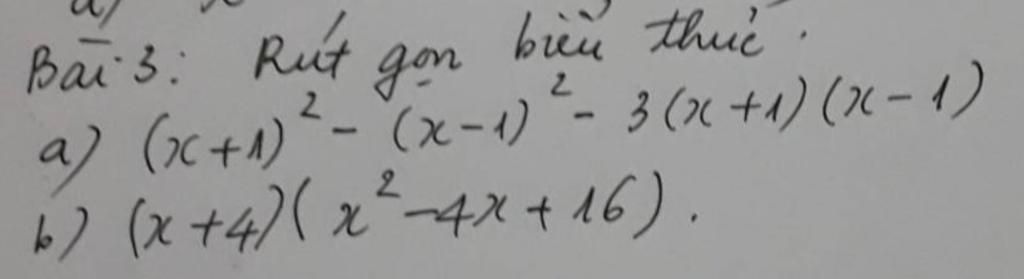 Bài 3: Rút gọn biểu thức.
a) (x+1)² - (x-1)² - 3(x+1)(x-1)
b) (x+4)(x²-4x+16).